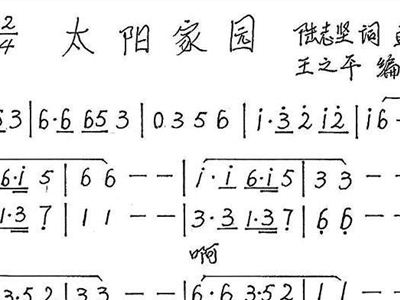 2/4 太阳家园 陆志坚 词
王之平 编
53 | 6·6 65 3 | 0 3 5 6 | i·3 2 i2 | i6
6·i 5 | 6 6 – – | i·i 6·i 5 | 3 3 – –
1·3 7 | 1 1 – – | 3·3 1·3 7 | 6 6 – –
啊
3·5 2 | 3 3 – – | 6·6 3·5 2 | 1 1 – –